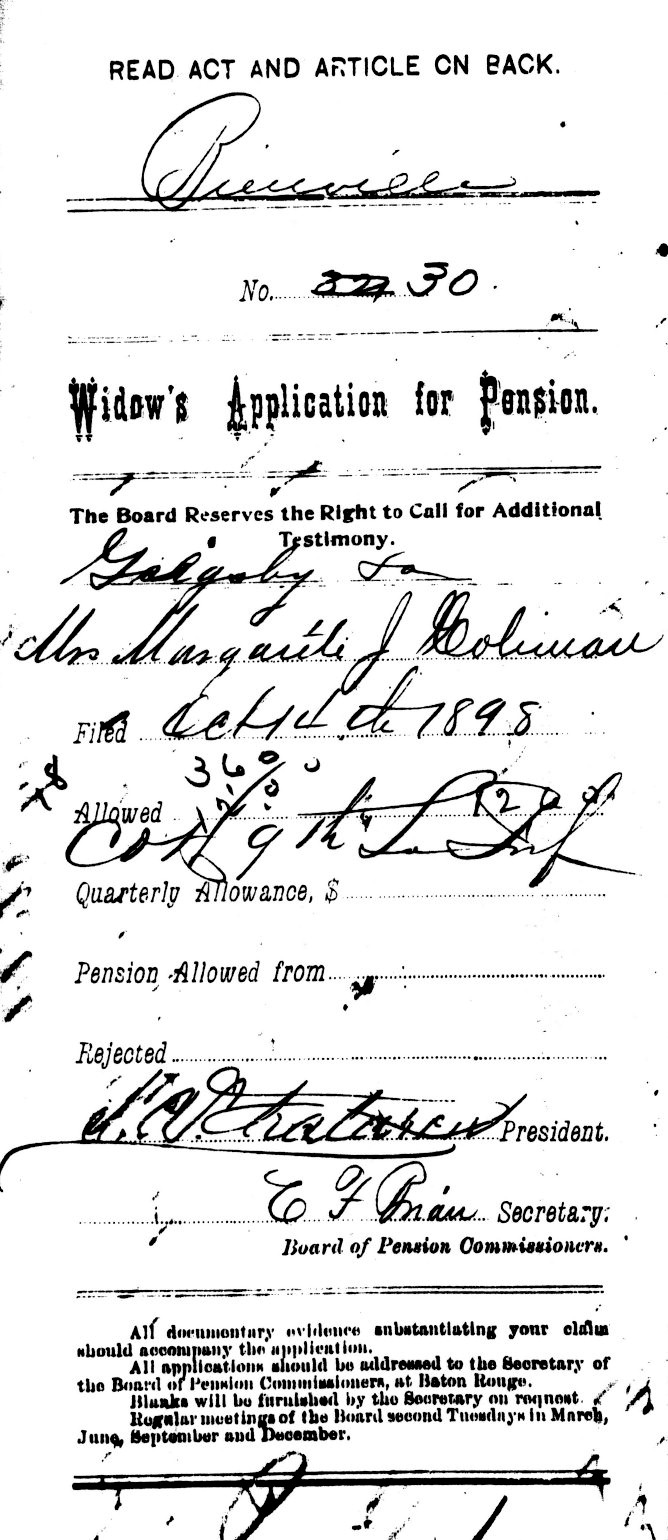 READ ACT AND ARTICLE ON BACK.
Bienville
No. 30.
Widow's Application for Pension.
The Board Reserves the Right to Call for Additional
Testimony.
La
Mrs J Holiman
Filed Oct 14th 1898
36
Allowed
Co H 9th La Inf
Quarterly Allowance, $
Pension Allowed from
Rejected
President.
C F Secretary.
Board of Pension Commissioners.
All documentary evidence substantiating your claim
should accompany the application.
All applications should be addressed to the Secretary of
the Board of Pension Commissioners, at Baton Rouge.
Blanks will be furnished by the Secretary on request.
Regular meetings of the Board second Tuesdays in March,
June, September and December.